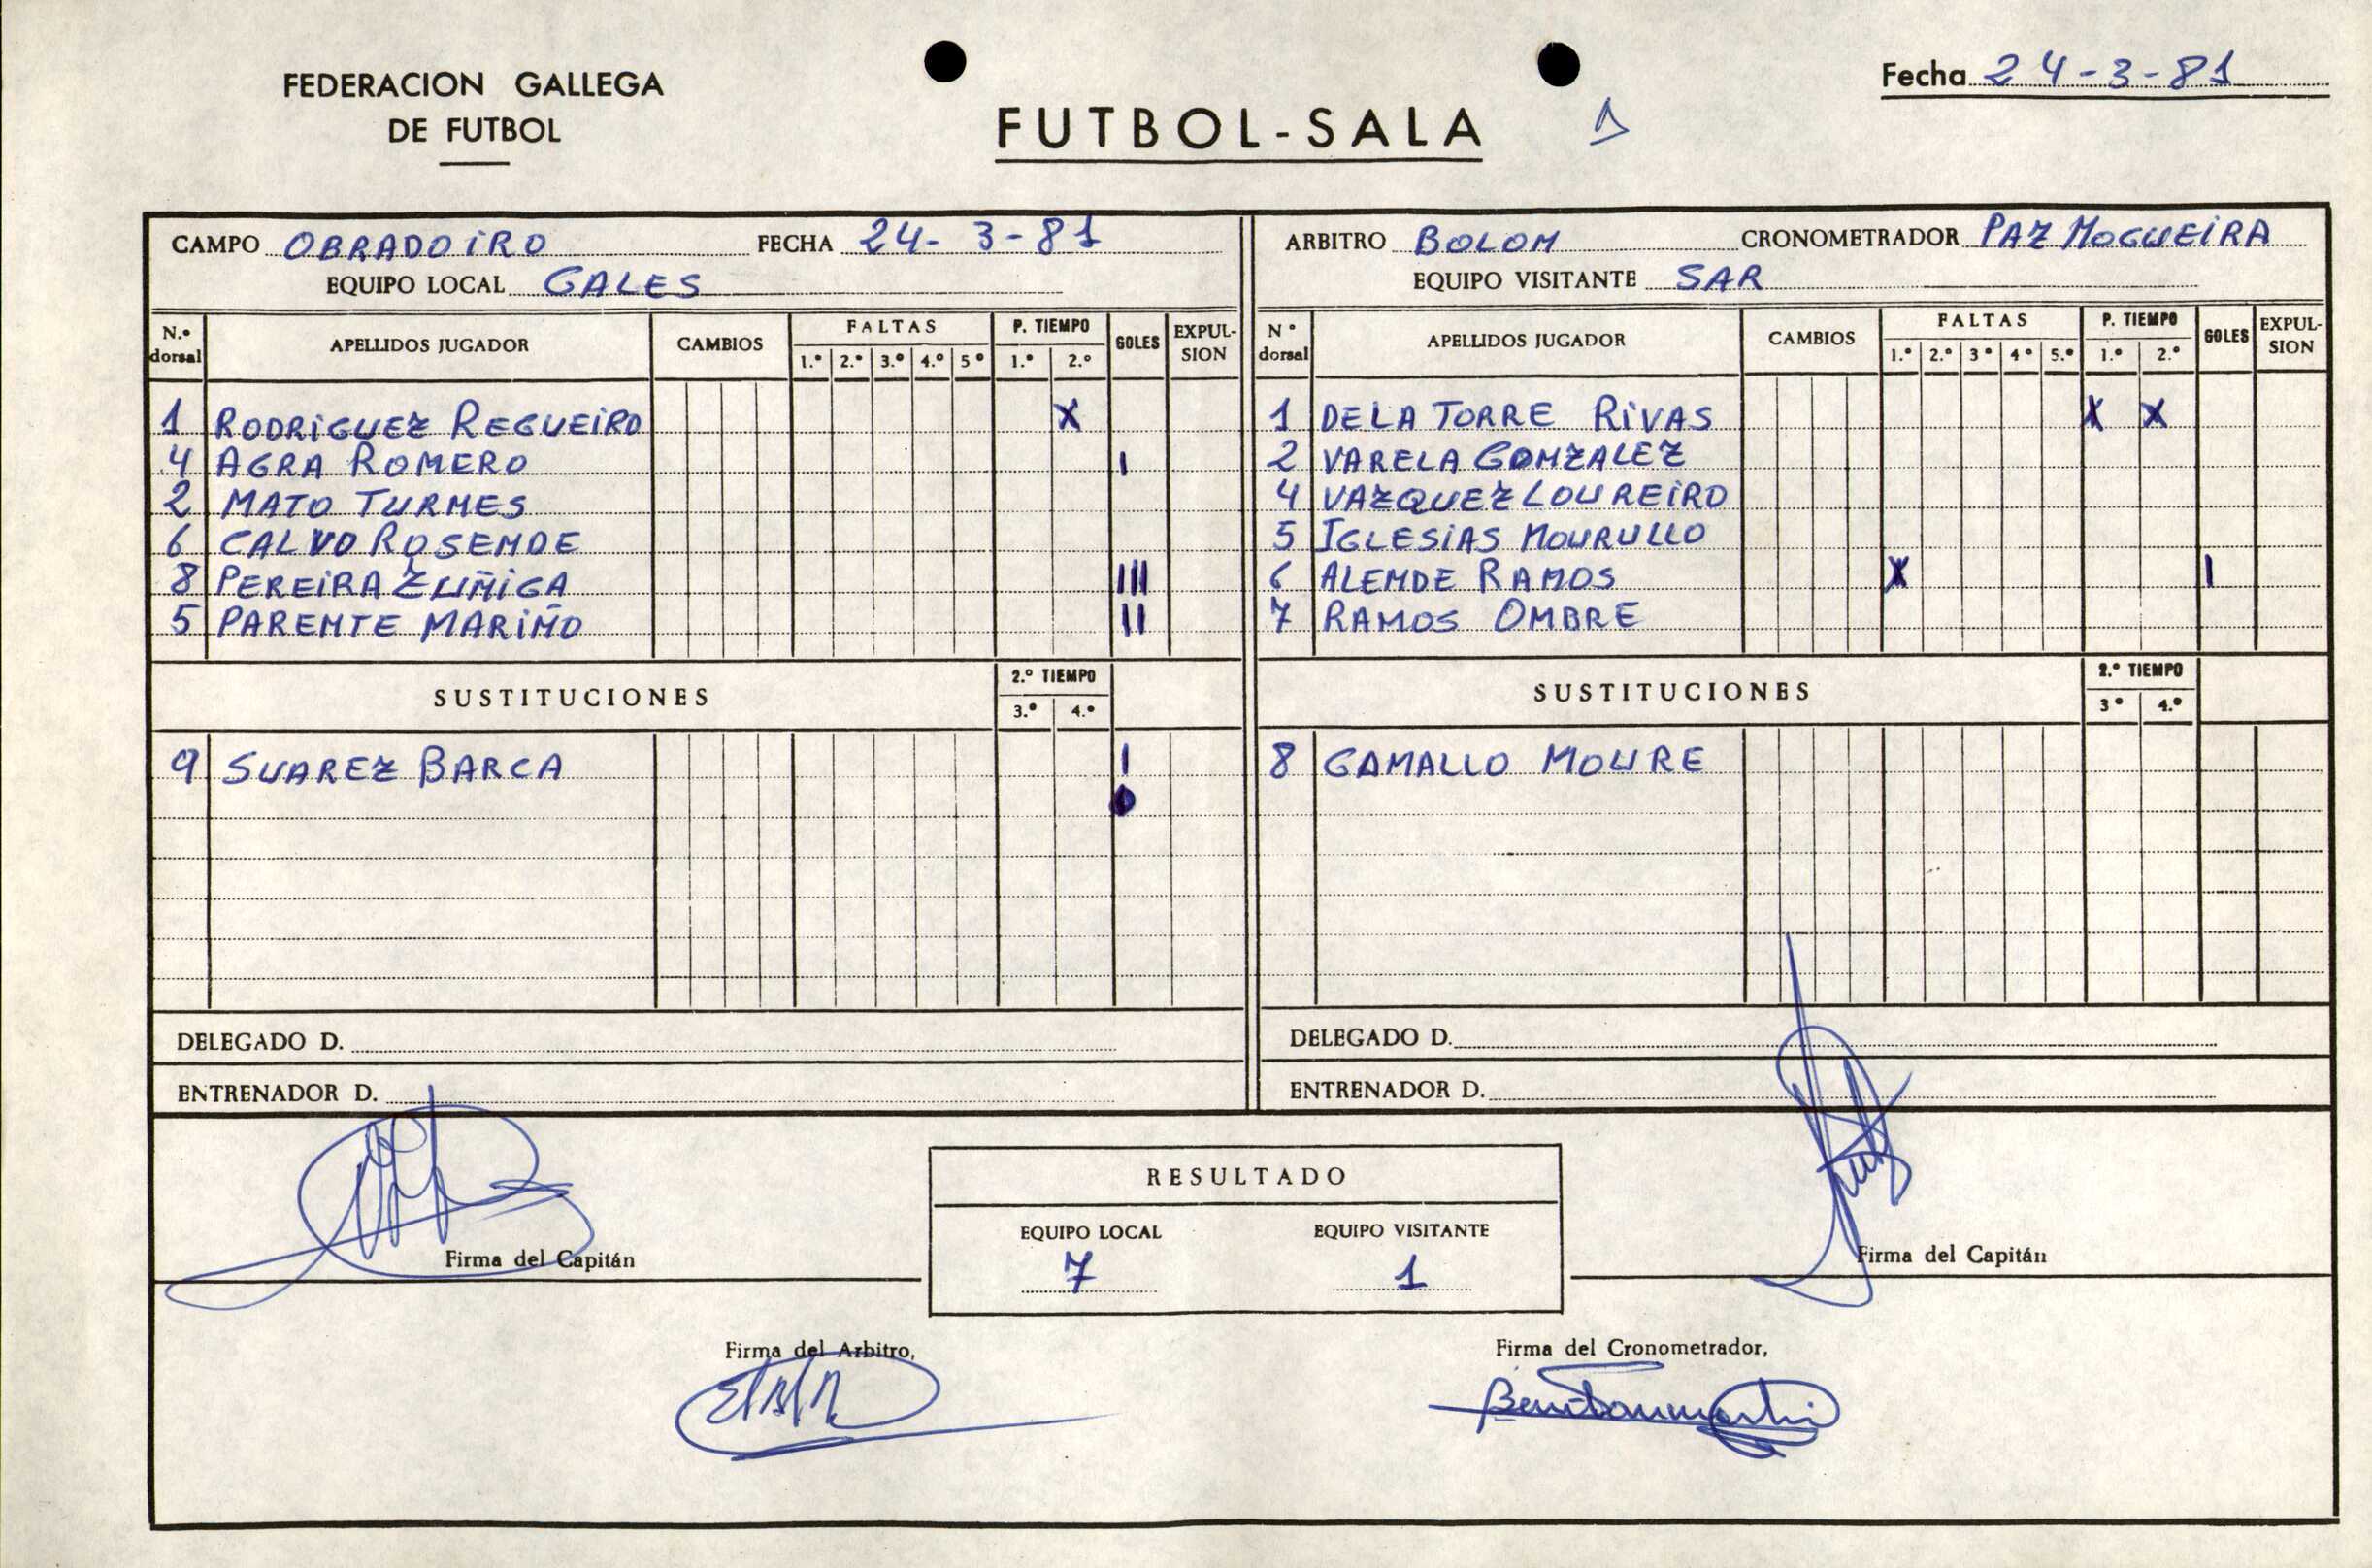 FEDERACION GALLEGA
DE FUTBOL
FUTBOL-SALA
Fecha 24-3-81
CAMPO OBRADOIRO FECHA 24-3-81
EQUIPO LOCAL GALES
N.º dorsal APELLIDOS JUGADOR CAMBIOS FALTAS 1.º 2.º 3.º 4.º 5º P. TIEMPO 1.º 2.º GOLES EXPULSION
1 RODRIGUEZ REGUEIRO X
4 AGRA ROMERO I
2 MATO TURMES
6 CALVO ROSENDE
8 PEREIRA ZUÑIGA III
5 PARENTE MARIÑO II
SUSTITUCIONES 2.º TIEMPO 3.º 4.º
9 SUAREZ BARCA I
DELEGADO D.
ENTRENADOR D.
ARBITRO BOLON CRONOMETRADOR PAZ NOGUEIRA
EQUIPO VISITANTE SAR
Nº dorsal APELLIDOS JUGADOR CAMBIOS FALTAS 1.º 2.º 3º 4º 5.º P. TIEMPO 1.º 2.º GOLES EXPULSION
1 DE LA TORRE RIVAS X X
2 VARELA GONZALEZ
4 VAZQUEZ LOUREIRO
5 IGLESIAS MOURULLO
6 ALENDE RAMOS X I
7 RAMOS OMBRE
SUSTITUCIONES 2.º TIEMPO 3º 4.º
8 GAMALLO MOURE
DELEGADO D.
ENTRENADOR D.
Firma del Capitán
RESULTADO
EQUIPO LOCAL EQUIPO VISITANTE
7 1
Firma del Capitán
Firma del Arbitro,
Firma del Cronometrador,